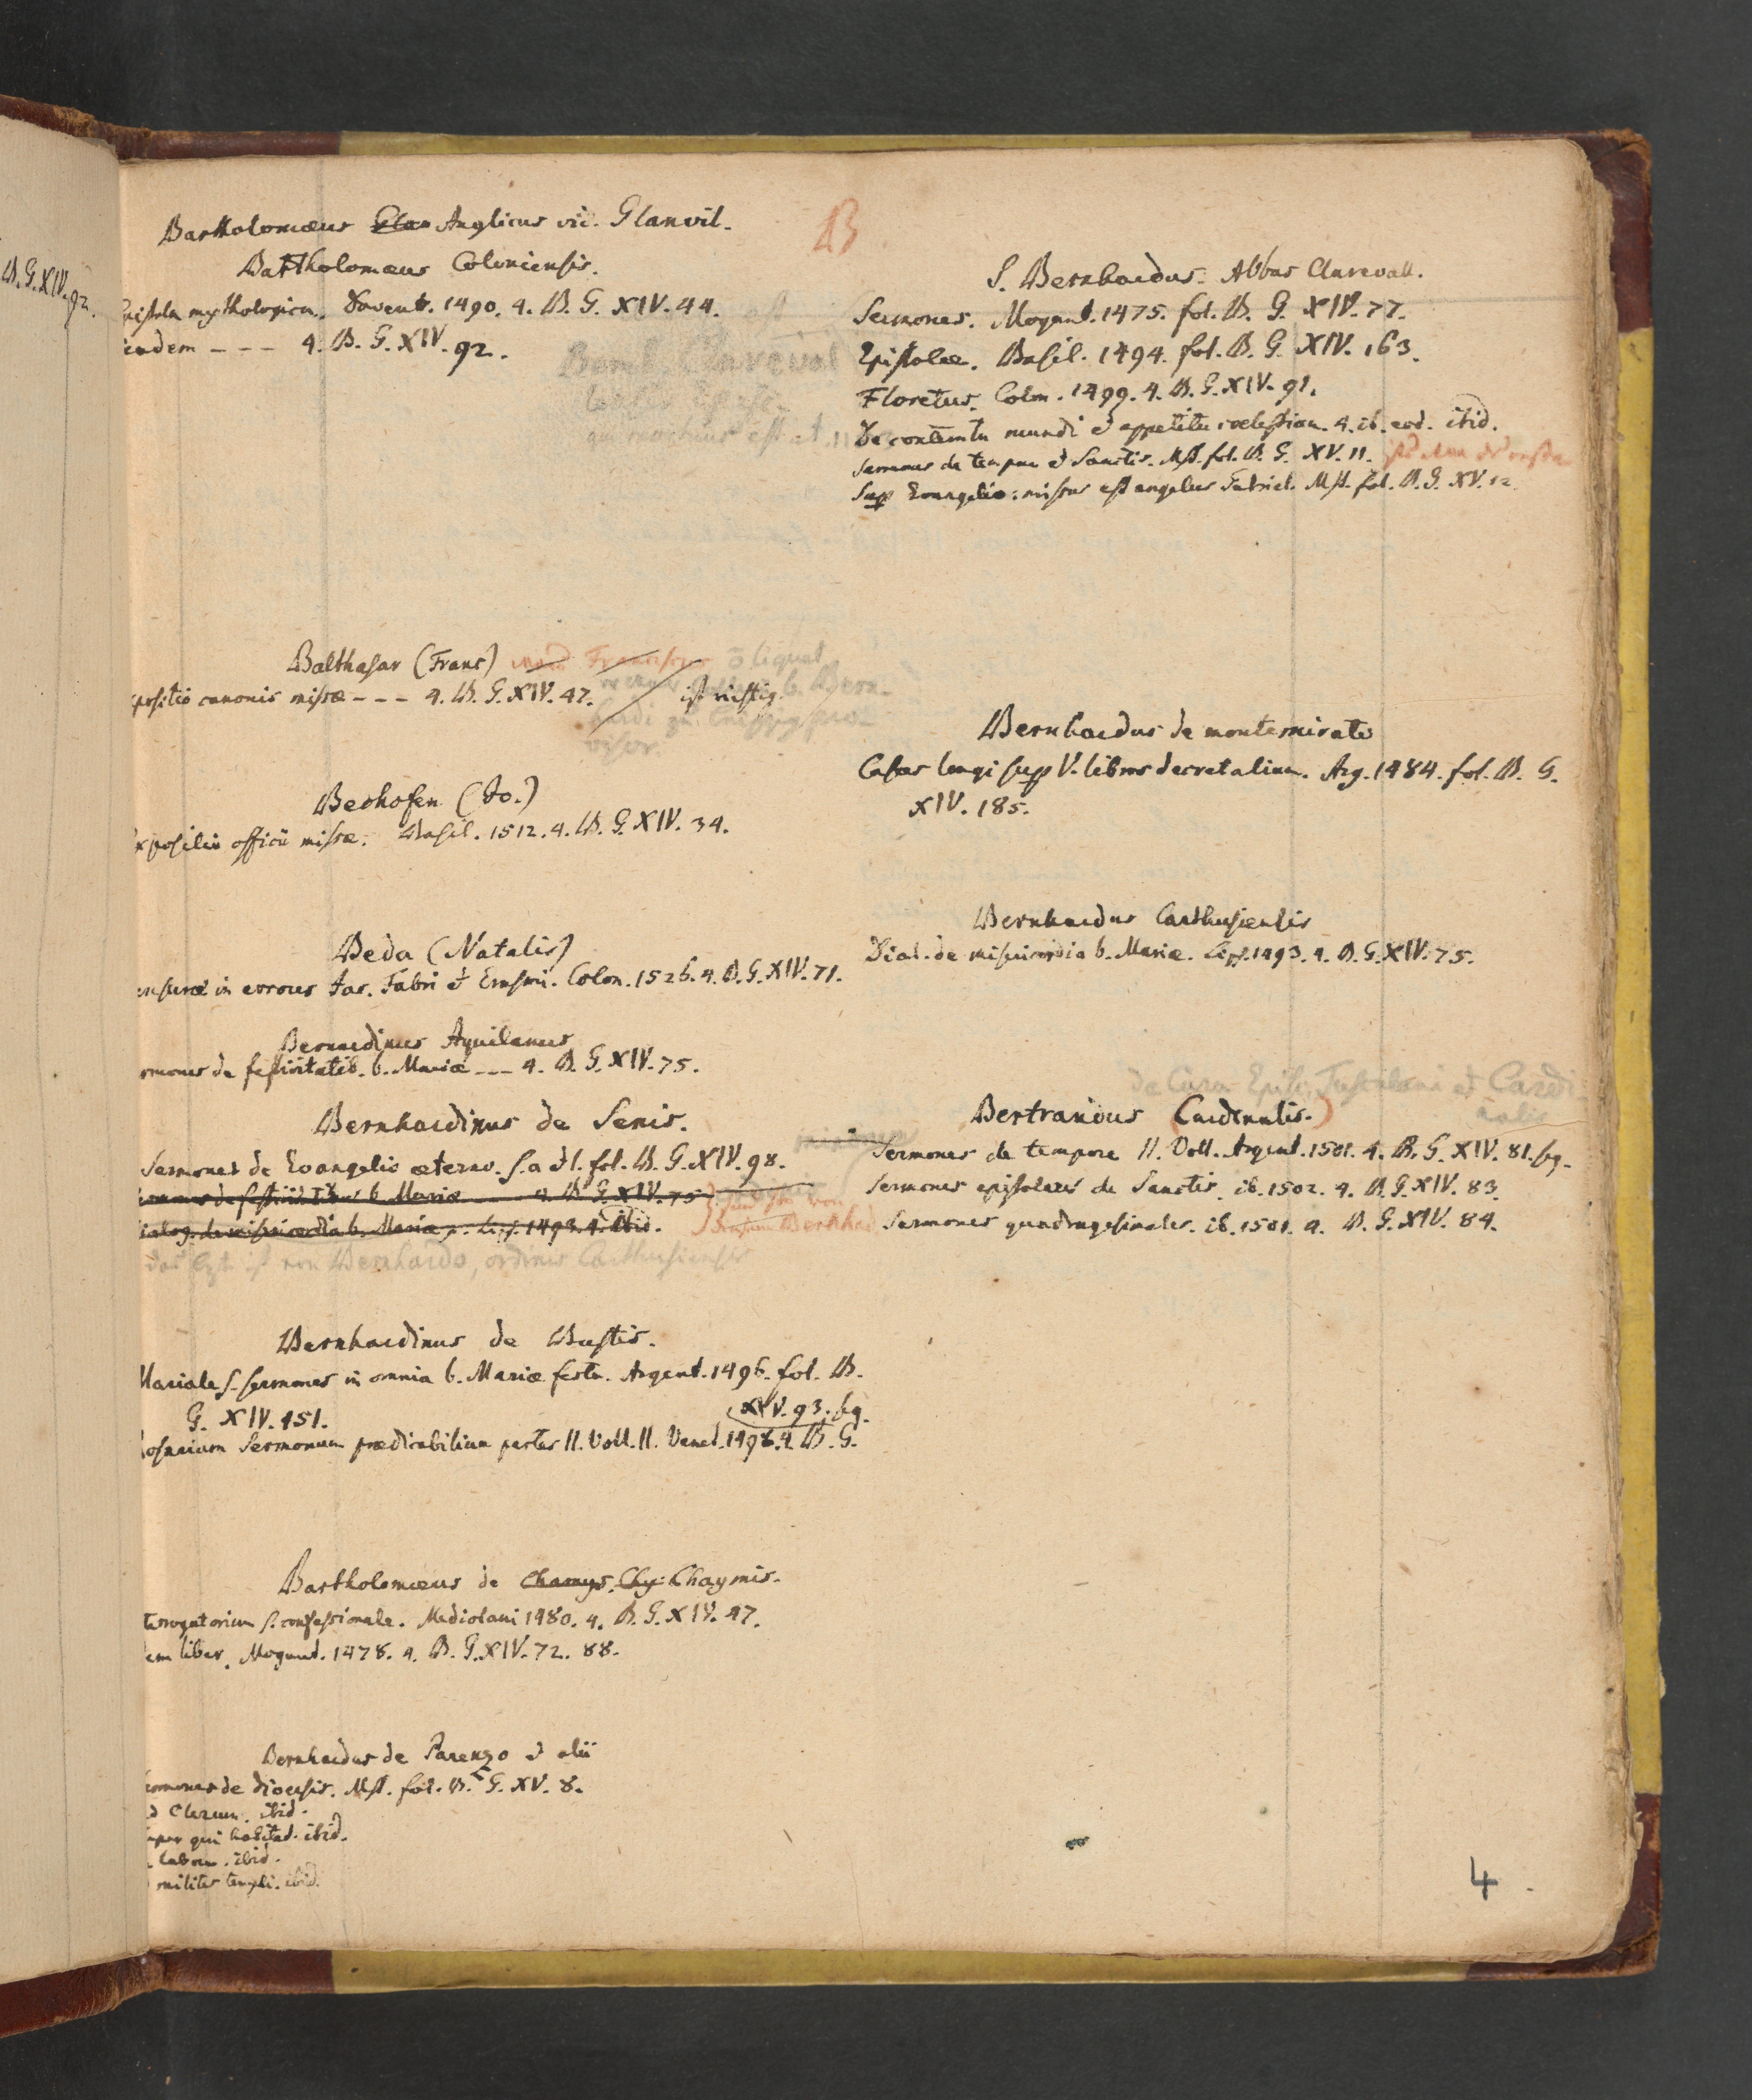 B. G. XIV. 92.
B
Bartholomæus Glan Anglicus vid. Glanvil.
Bartholomæus Coloniensis.
Epistola mythologica. Davent. 1490. 4. B. G. XIV. 44.
eadem - - - 4. B. G. XIV. 92.
Balthasar (Franc)
ō liquet
ist richtig.
positio canonis missæ - - - 4. B. G. XIV. 47.
Bechofen (Jo.)
Expositio officii missæ. Basil. 1512. 4. B. G. XIV. 34.
Beda (Natalis)
ensuræ in errores Jac. Fabri et Erasmi. Colon. 1526. 4. B. G. XIV. 71.
Bernardinus Aquilanus
rmones de festivitatib. b. Mariæ - - - 4. B. G. XIV. 75.
Bernhardinus de Senis.
Sermones de Evangelio æterno. s. a et l. fol. B. G. XIV. 98.
ermones de festivitatibus b. Mariæ - - - 4. B. G. XIV. 75
ialog. de misericordia b. Mariæ. Lips. 1493. 4. ibid.
das lezte ist von Bernhardo, ordinis Carthusiensis
Bernhardinus de Bustis.
Mariale s. sermones in omnia b. Mariæ festa. Argent. 1496. fol. B.
G. XIV. 151.
XIV. 93. sq.
Rosarium Sermonum prædicabilium partes II. Voll. II. Venet. 1498. 4. B. G.
Bartholomæus de Chamys. Chy. Chaymis.
terrogatorium s. confessionale. Mediolani 1480. 4. B. G. XIV. 47.
em liber. Mogunt. 1478. 4. B. G. XIV. 72. 88.
Bernhardus de Parenzo et alii
ermones de diocesis. Mst. fol. B. G. XV. 8.
d Clerum. ibid.
uper qui habitat. ibid.
labore. ibid.
milites templi. ibid.
S. Bernhardus. Abbas Clarevall.
Sermones. Mogunt. 1475. fol. B. G. XIV. 77.
Epistolæ. Basil. 1494. fol. B. G. XIV. 163.
Floretus. Colon. 1499. 4. B. G. XIV. 91.
De contemtu mundi et appetitu cœlestium. 4. ib. eod. ibid.
Sermones de tempore et Sanctis. Mst. fol. B. G. XV. 11.
Sup Evangelio: missus est angelus Gabriel. Mst. fol. B. G. XV. 12.
Bernhardus de montemirato
Casus longi sup V. libros decretalium. Arg. 1484. fol. B. G.
XIV. 185.
Bernhardus Carthusiensis
Dial. de misericordia b. Mariæ. Lips. 1493. 4. B. G. XIV. 75.
Bertrandus (Cardinalis.)
Sermones de tempore II. Voll. Argent. 1501. 4. B. G. XIV. 81. sq.
Sermones epistolares de Sanctis. ib. 1502. 4. B. G. XIV. 83.
Sermones quadragesimales. ib. 1501. 4. B. G. XIV. 84.
4